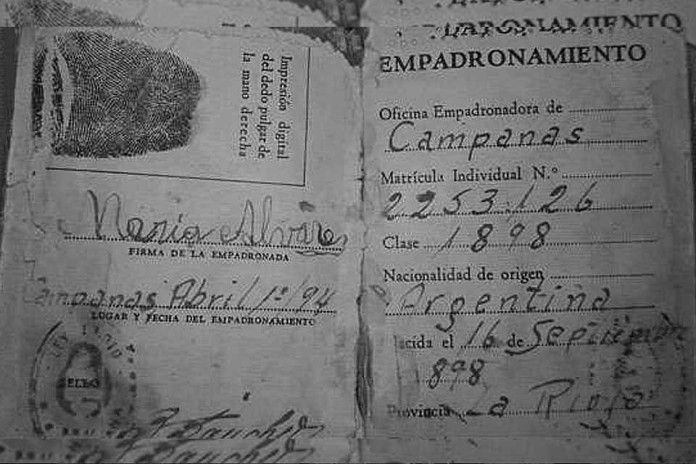 Impresión digital
del dedo pulgar de
la mano derecha
Maria Alvares
FIRMA DE LA EMPADRONADA
Campanas Abril 1º/94
LUGAR Y FECHA DEL EMPADRONAMIENTO
SELLO
EMPADRONAMIENTO
EMPADRONAMIENTO
Oficina Empadronadora de
Campanas
Matrícula Individual N.º
2253.126
Clase 1898
Nacionalidad de origen
Argentina
Nacida el 16 de Septiembre
898
Provincia La Rioja